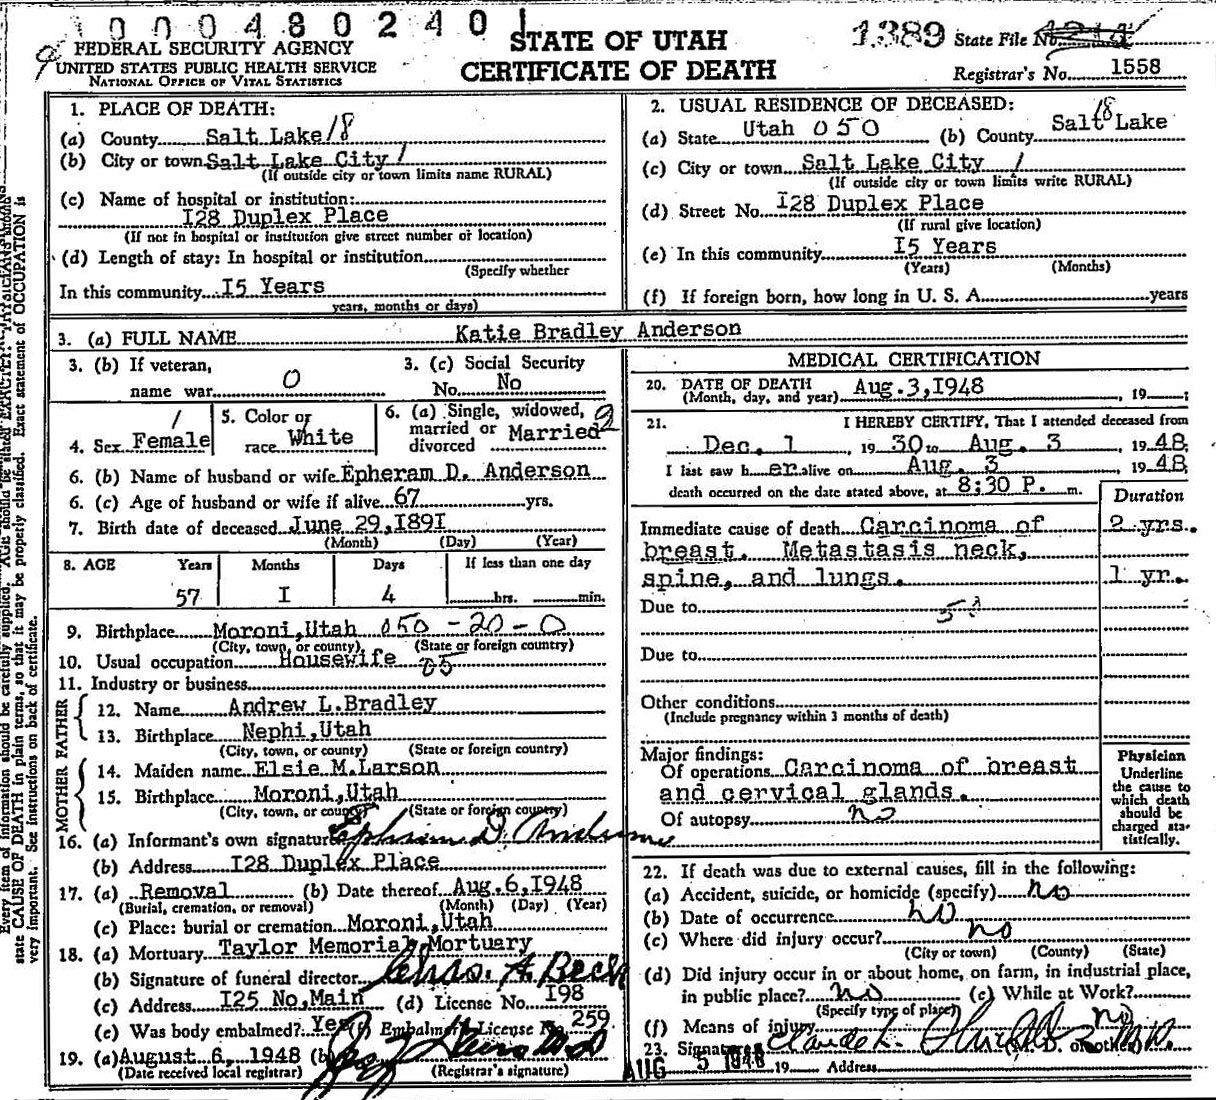 1000480240
FEDERAL SECURITY AGENCY
UNITED STATES PUBLIC HEALTH SERVICE
NATIONAL OFFICE OF VITAL STATISTICS
STATE OF UTAH
CERTIFICATE OF DEATH
1389 State File No.
Registrar's No. 1558
1. PLACE OF DEATH:
(a) County Salt Lake 18
(b) City or town Salt Lake City 1
(If outside city or town limits name RURAL)
(c) Name of hospital or institution:
I28 Duplex Place
(If not in hospital or institution give street number or location)
(d) Length of stay: In hospital or institution
(Specify whether
In this community I5 Years
years, months or days)
2. USUAL RESIDENCE OF DECEASED:
(a) State Utah 050 (b) County Salt Lake 18
(c) City or town Salt Lake City 1
(If outside city or town limits write RURAL)
(d) Street No. I28 Duplex Place
(If rural give location)
(e) In this community I5 Years
(Years) (Months)
(f) If foreign born, how long in U. S. A. years
3. (a) FULL NAME Katie Bradley Anderson
3. (b) If veteran,
name war O
3. (c) Social Security
No. No
4. Sex Female 1
5. Color or
race White
6. (a) Single, widowed,
married or
divorced Married 2
6. (b) Name of husband or wife Epheram D. Anderson
6. (c) Age of husband or wife if alive 67 yrs.
7. Birth date of deceased June 29,I89I
(Month) (Day) (Year)
8. AGE Years Months Days If less than one day
57 I 4 hrs. min.
9. Birthplace Moroni,Utah 050-20-0
(City, town, or county) (State or foreign country)
10. Usual occupation Housewife
11. Industry or business
FATHER
12. Name Andrew L.Bradley
13. Birthplace Nephi,Utah
(City, town, or county) (State or foreign country)
MOTHER
14. Maiden name Elsie M.Larson
15. Birthplace Moroni,Utah
(City, town, or county) (State or foreign country)
16. (a) Informant's own signature Ephraim D. Anderson
(b) Address I28 Duplex Place
17. (a) Removal (b) Date thereof Aug.6,I948
(Burial, cremation, or removal) (Month) (Day) (Year)
(c) Place: burial or cremation Moroni,Utah
18. (a) Mortuary Taylor Memorial Mortuary
(b) Signature of funeral director Chas. A. Beck
(c) Address I25 No,Main (d) License No. I98
(e) Was body embalmed? Yes (f) Embalmer License No. 259
19. (a) August 6, 1948 (b)
(Date received local registrar) (Registrar's signature)
MEDICAL CERTIFICATION
20. DATE OF DEATH
(Month, day, and year) Aug.3,I948 , 19 ;
21. I HEREBY CERTIFY, That I attended deceased from
Dec. 1 19 30 to Aug. 3 19 48
I last saw h er alive on Aug. 3 19 48
death occurred on the date stated above, at 8:30 P. m.
Duration
Immediate cause of death Carcinoma of 2 yrs.
breast. Metastasis neck,
spine, and lungs. 1 yr.
Due to
Due to
Other conditions
(Include pregnancy within 3 months of death)
Major findings:
Of operations Carcinoma of breast
and cervical glands.
Of autopsy no
Physician
Underline
the cause to
which death
should be
charged sta-
tistically.
22. If death was due to external causes, fill in the following:
(a) Accident, suicide, or homicide (specify) no
(b) Date of occurrence no
(c) Where did injury occur? no
(City or town) (County) (State)
(d) Did injury occur in or about home, on farm, in industrial place,
in public place? no (e) While at Work?
(Specify type of place)
(f) Means of injury no
23. Signature Claude L. (M. D. or other)
AUG 5 1948 19 Address
Every item of information should be carefully supplied. AGE should be stated EXACTLY. PHYSICIANS should
state CAUSE OF DEATH in plain terms, so that it may be properly classified. Exact statement of OCCUPATION is
very important. See instructions on back of certificate.